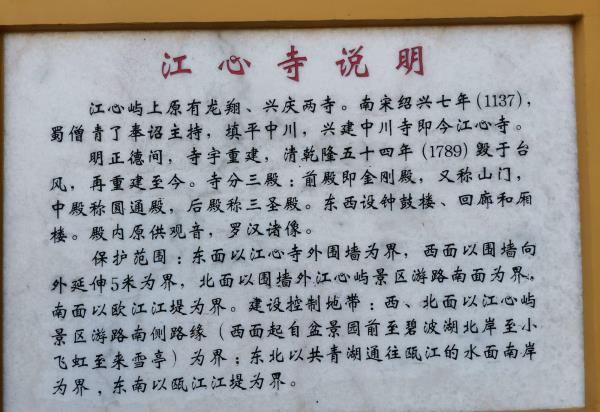 江心寺说明
江心屿上原有龙翔、兴庆两寺。南宋绍兴七年(1137),
蜀僧青了奉诏主持，填平中川，兴建中川寺即今江心寺。
明正德间，寺宇重建，清乾隆五十四年(1789)毁于台
风，再重建至今。寺分三殿：前殿即金刚殿，又称山门，
中殿称圆通殿，后殿称三圣殿。东西设钟鼓楼、回廊和厢
楼。殿内原供观音，罗汉诸像。
保护范围：东面以江心寺外围墙为界，西面以围墙向
外延伸5米为界，北面以围墙外江心屿景区游路南面为界，
南面以欧江江堤为界。建设控制地带：西、北面以江心屿
景区游路南侧路缘（西面起自盆景园前至碧波湖北岸至小
飞虹至来雪亭）为界；东北以共青湖通往瓯江的水面南岸
为界，东南以瓯江江堤为界。